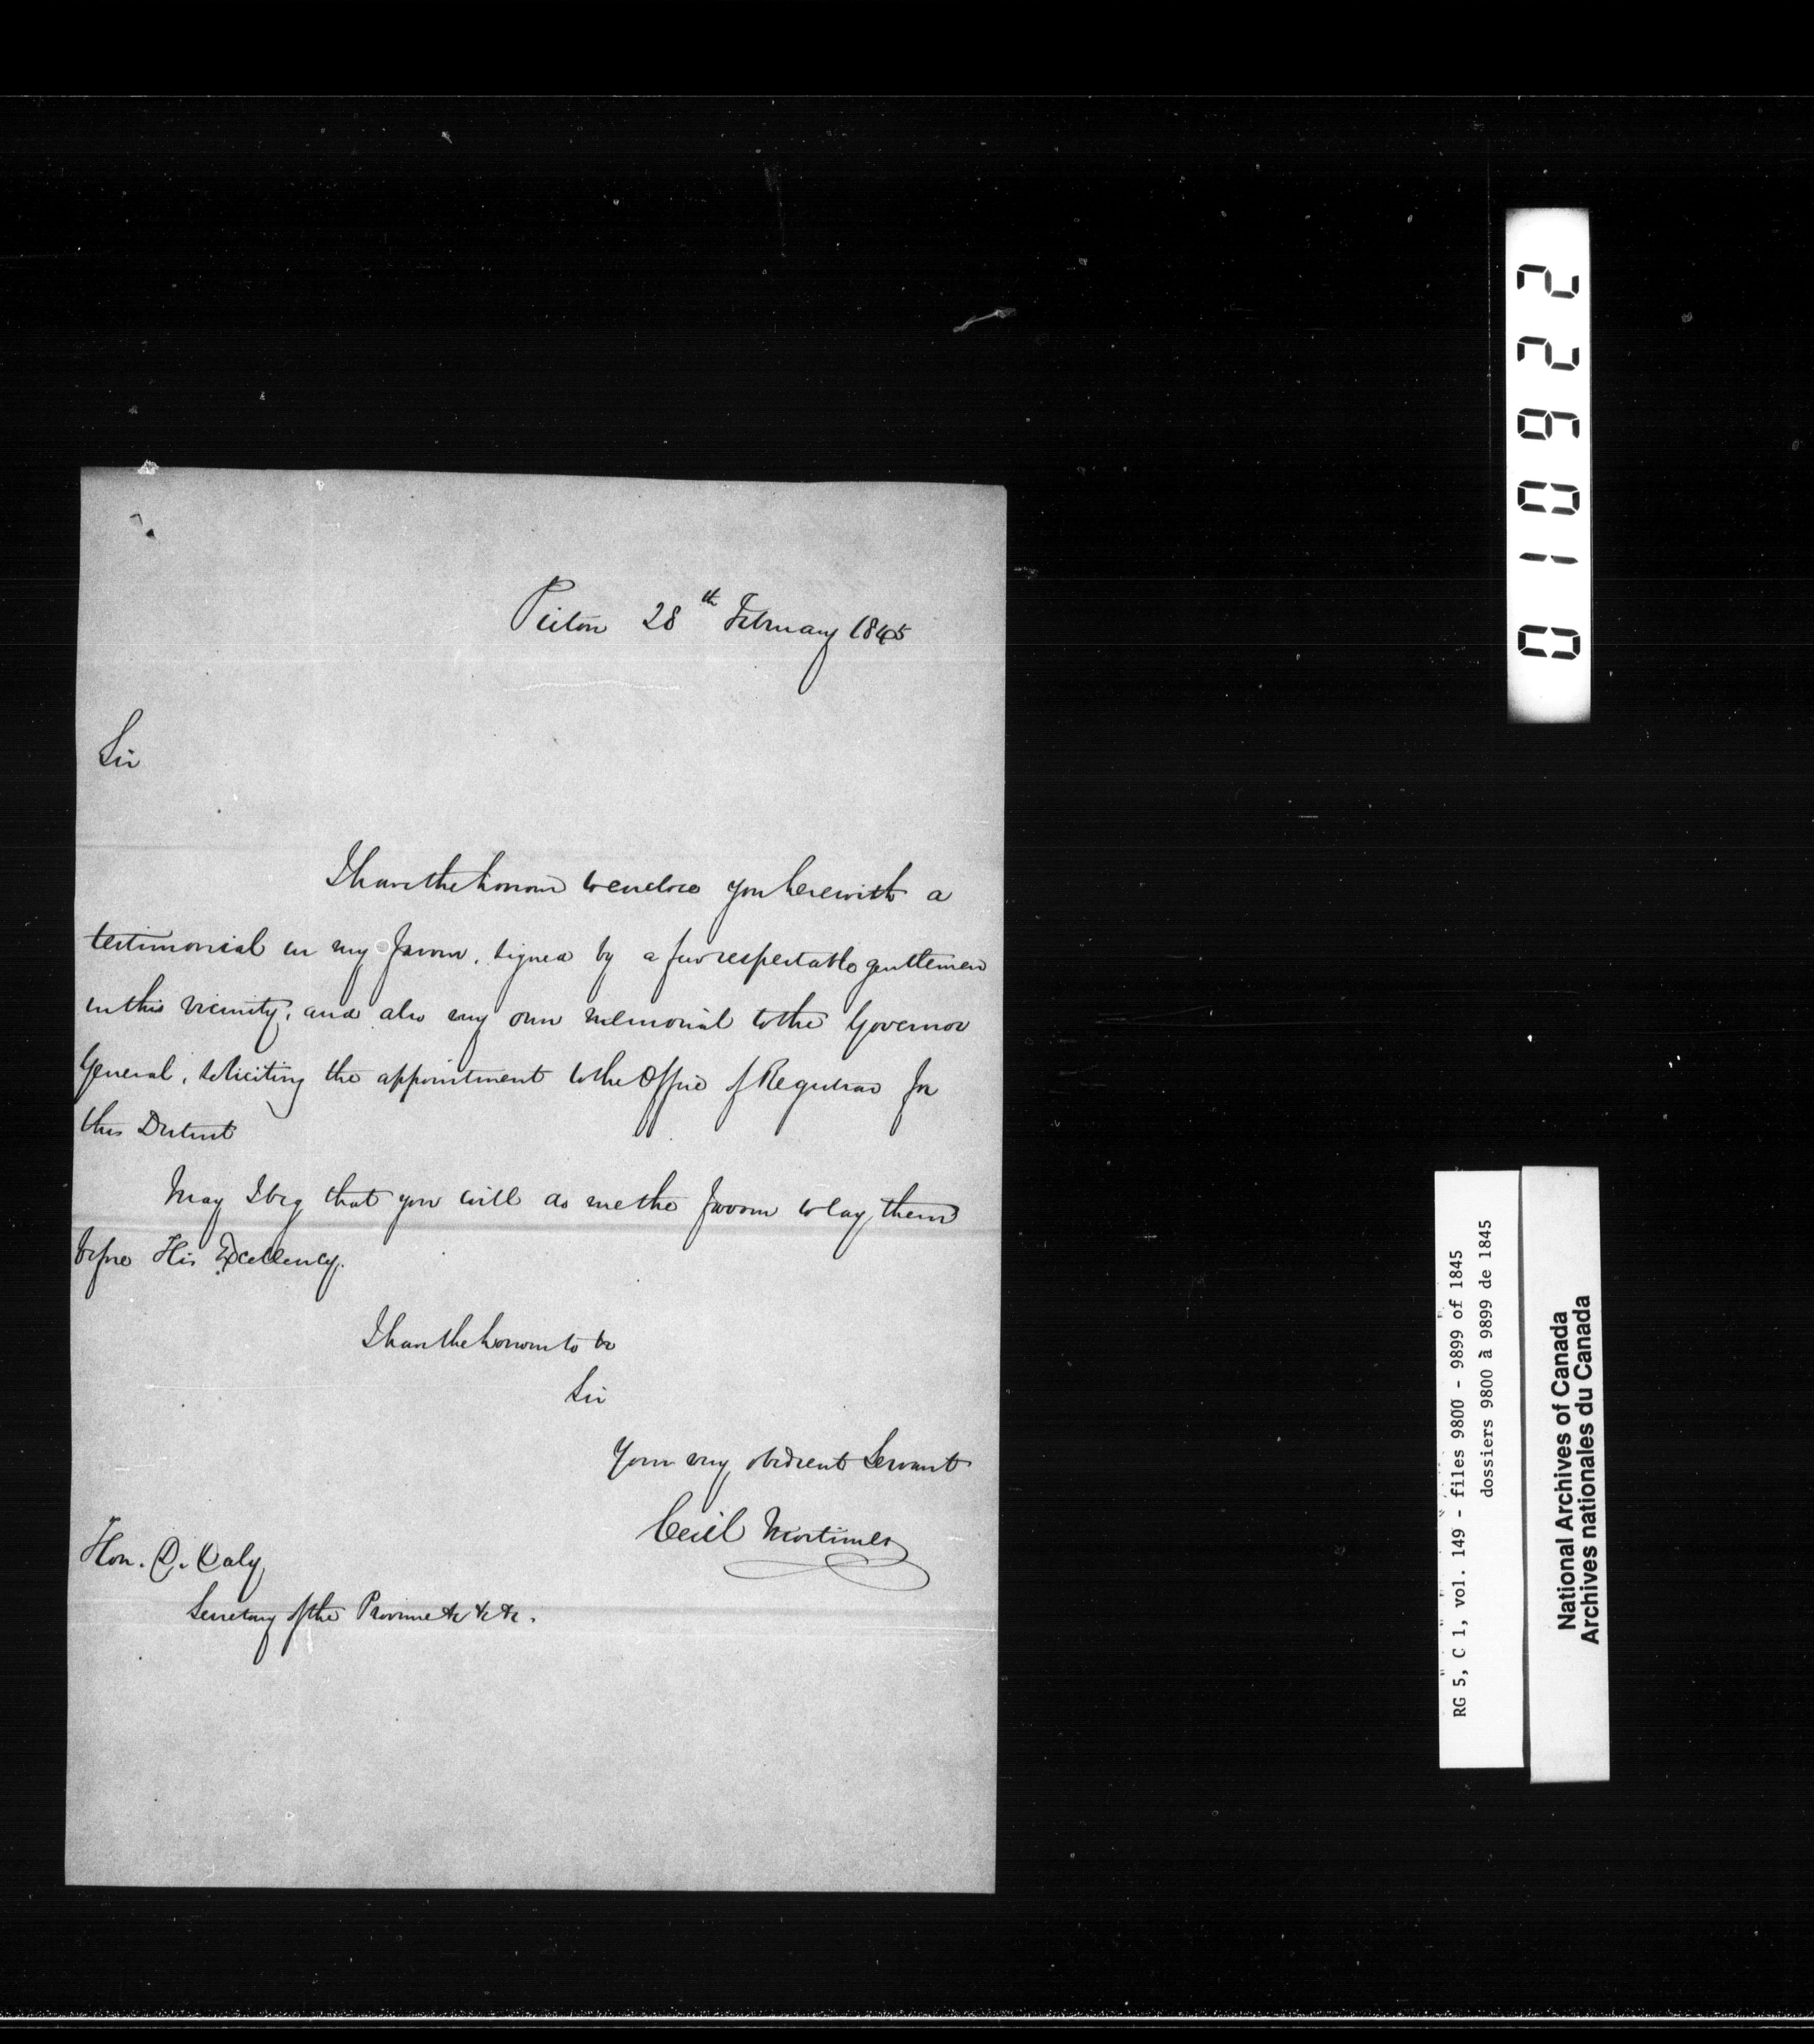 Picton 28th February 1845
Sir
I have the honour to enclose you herewith a
testimonial in my favour, signed by a few respectable gentlemen
in this vicinity, and also my own memorial to the Governor
General, soliciting the appointment to the Office of Registrar for
this District
May I beg that you will do me the favour to lay them
before His Excellency.
I have the honour to be
Sir
Your very obedient Servant
Cecil Mortimer
Hon. D. Daly
Secretary of the Province &c &c &c.
010922
RG 5, C 1, vol. 149 - files 9800 - 9899 of 1845
dossiers 9800 à 9899 de 1845
National Archives of Canada
Archives nationales du Canada